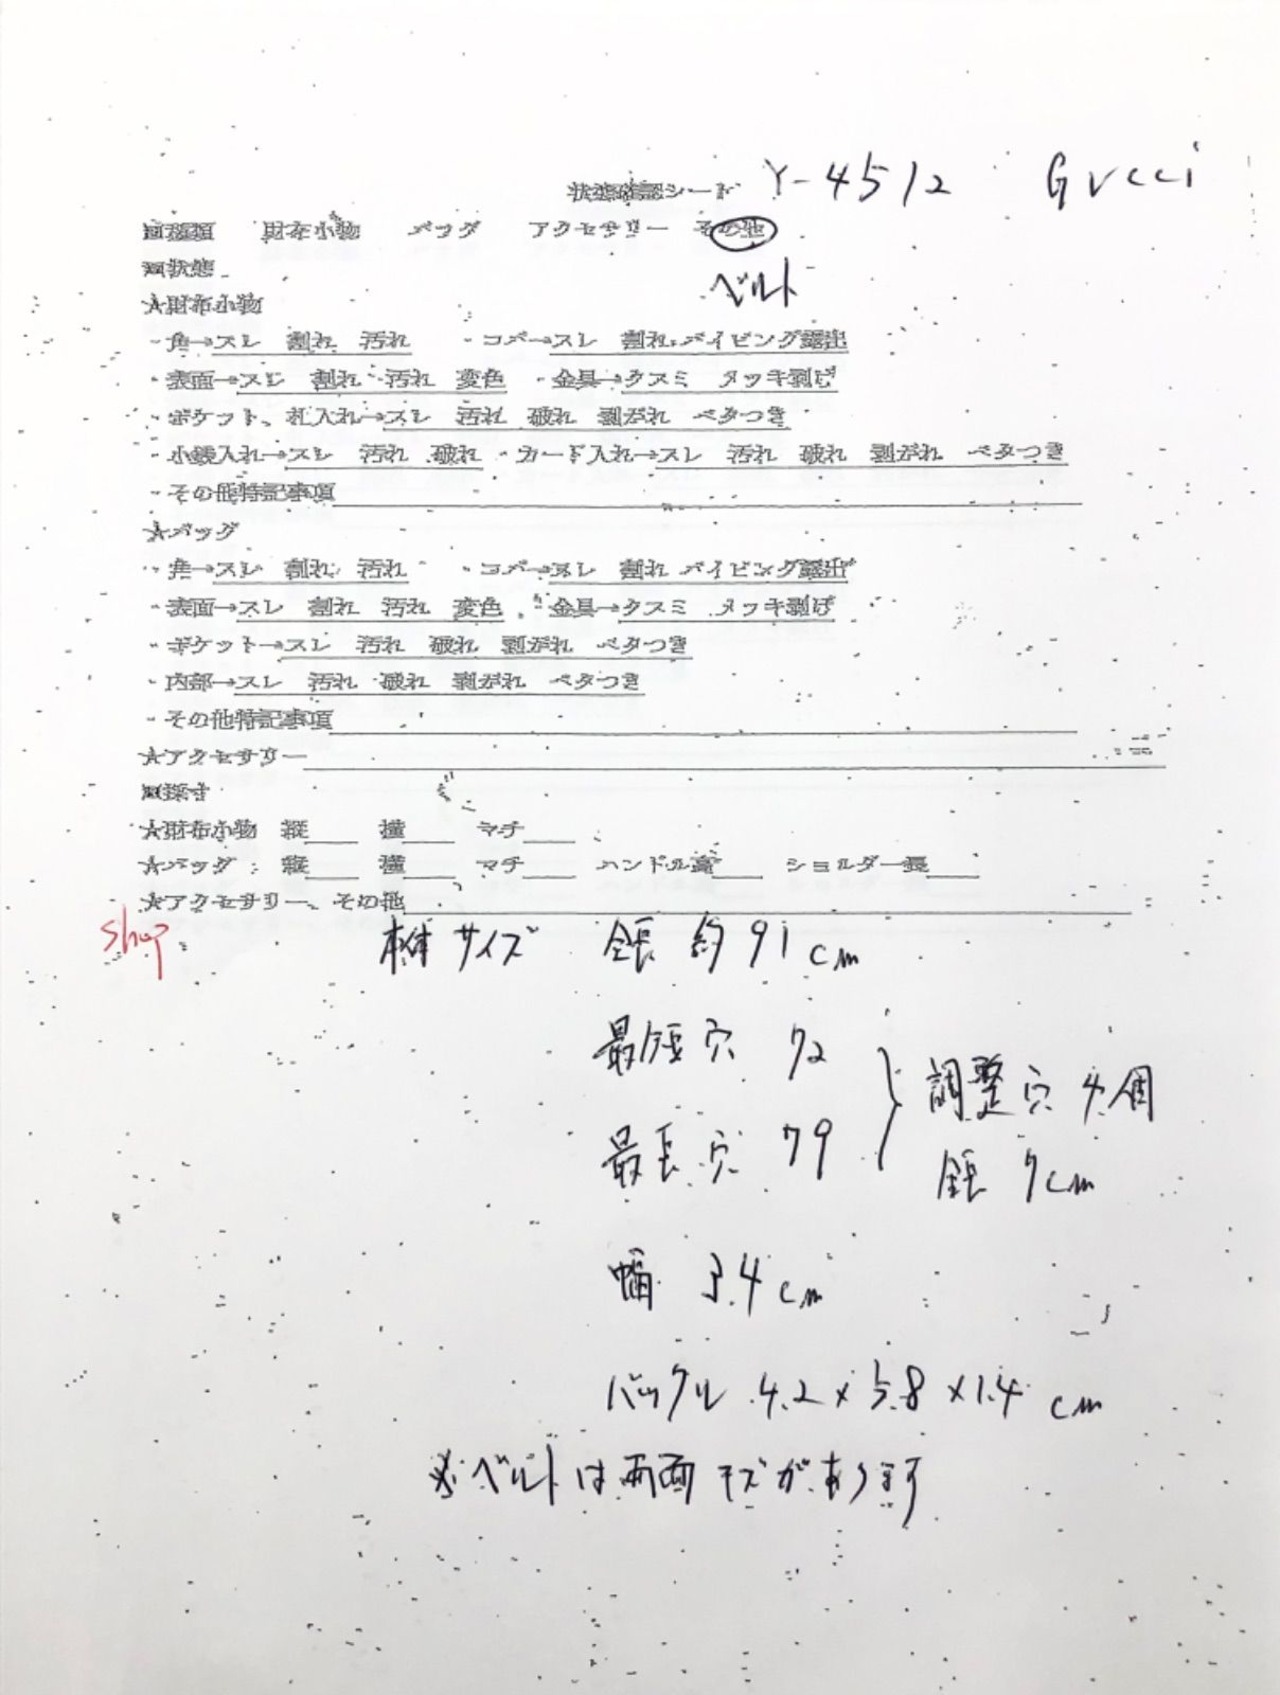 状態確認シート Y-4512 Gucci
■種類 財布小物 バッグ アクセサリー その他
■状態 ベルト
★財布小物
・角→スレ 割れ 汚れ ・コバ→スレ 割れ パイピング露出
・表面→スレ 割れ 汚れ 変色 ・金具→クスミ メッキ剥げ
・ポケット、札入れ→スレ 汚れ 破れ 剥がれ ベタつき
・小銭入れ→スレ 汚れ 破れ ・カード入れ→スレ 汚れ 破れ 剥がれ ベタつき
・その他特記事項
★バッグ
・角→スレ 割れ 汚れ ・コバ→スレ 割れ パイピング露出
・表面→スレ 割れ 汚れ 変色 ・金具→クスミ メッキ剥げ
・ポケット→スレ 汚れ 破れ 剥がれ ベタつき
・内部→スレ 汚れ 破れ 剥がれ ベタつき
・その他特記事項
★アクセサリー
■採寸
★財布小物 縦 横 マチ
★バッグ 縦 横 マチ ハンドル高 ショルダー長
★アクセサリー、その他
shop 本体サイズ 全長 約91cm
最短穴 72
最長穴 79
調整穴 4個
全長 7cm
幅 3.4cm
バックル 4.2×5.8×1.4cm
※ベルトは両面キズがあります